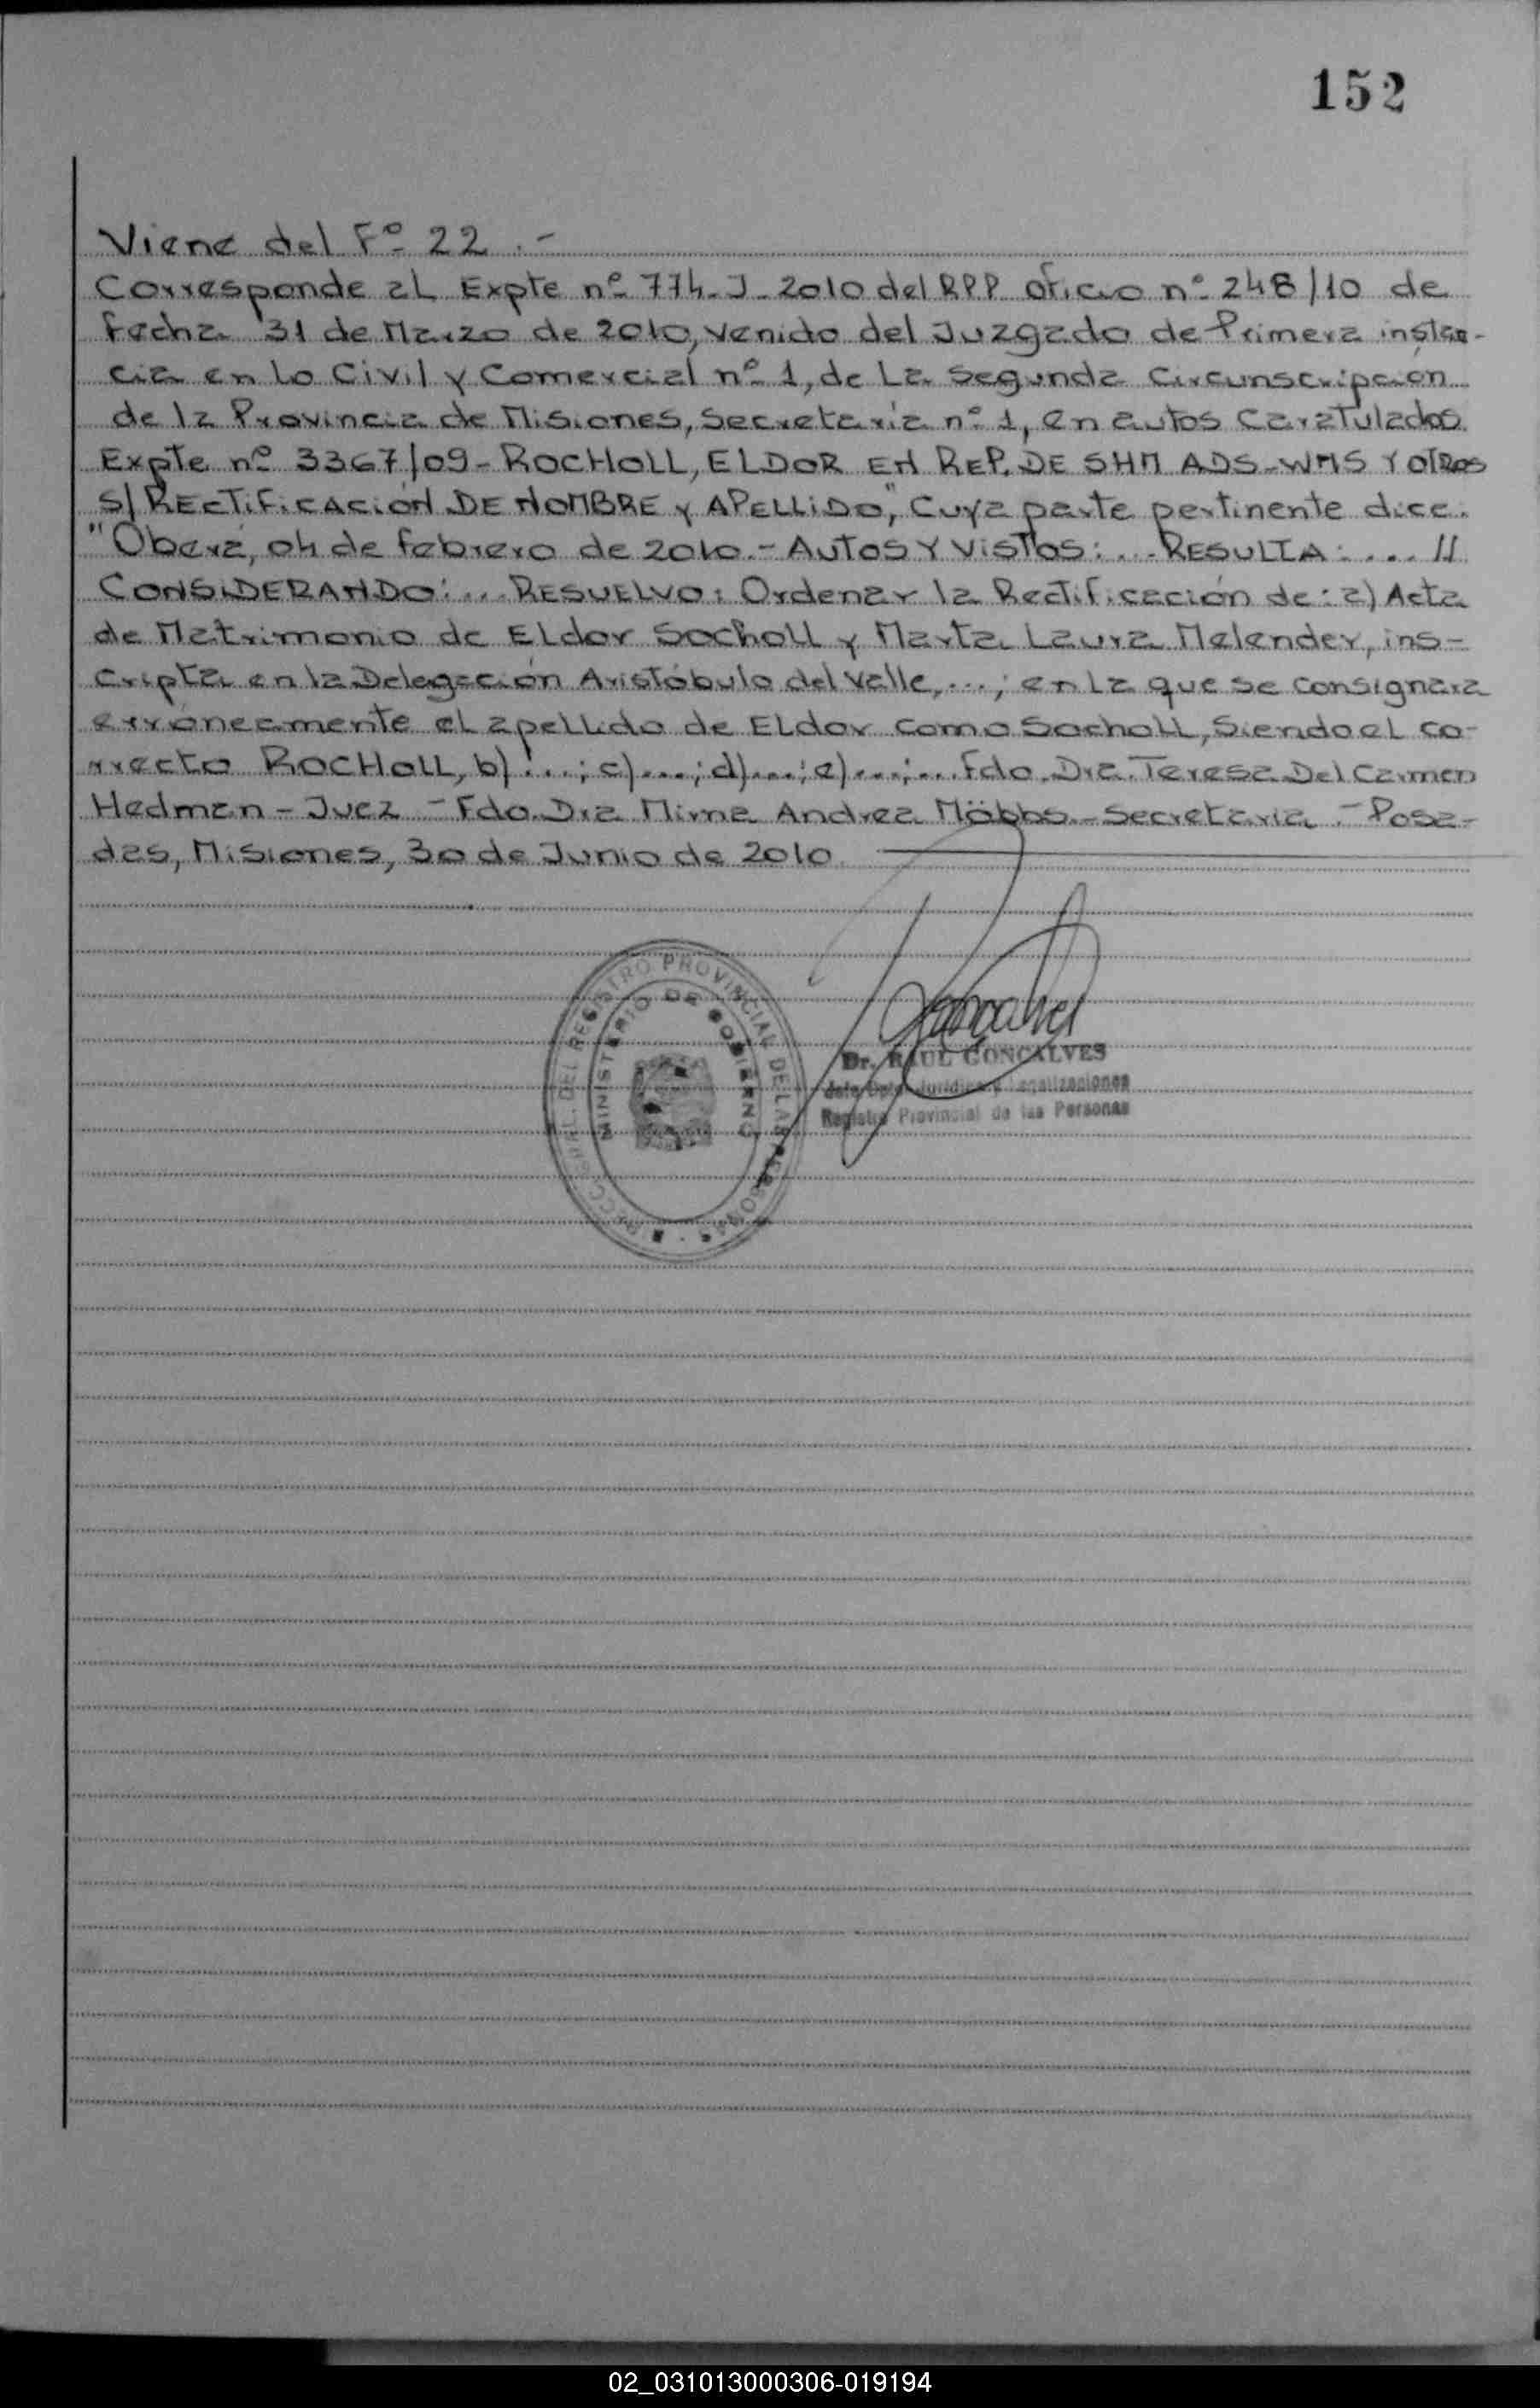 152
Viene del Fº 22.-
Corresponde al Expte nº 774-J-2010 del RPP oficio nº 248/10 de
fecha 31 de Marzo de 2010, venido del Juzgado de Primera instan-
cia en lo Civil y Comercial nº 1, de La Segunda Circunscripción
de la Provincia de Misiones, Secretaría nº 1, en autos Caratulados
Expte nº 3367/09-ROCHOLL, ELDOR EN REP. DE SHM ADS-WMS Y OTROS
S/RECTIFICACIÓN DE NOMBRE y APELLIDO", Cuya parte pertinente dice:
"Oberá, 04 de febrero de 2010.- AUTOS Y VISTOS:... RESULTA:.... //
CONSIDERANDO:... RESUELVO: Ordenar la Rectificación de: a) Acta
de Matrimonio de Eldor Socholl y Marta Laura Melender, ins-
cripta en la Delegación Aristóbulo del Valle,...; en La que se consignara
erróneamente el apellido de Eldor como Socholl, Siendo el co-
rrecto ROCHOLL, b)...; c)....; d)....; e)....;.... Fdo. Dra. Teresa Del Carmen
Hedman - Juez - Fdo. Dra Mirna Andrea Möbbs - Secretaria - Posa-
das, Misiones, 30 de Junio de 2010.
DEL REGISTRO PROVINCIAL DE LAS PERSONAS
MINISTERIO DE GOBIERNO
Dr. RAUL GONCALVES
Jefe Dpto. Jurídico y Legalizaciones
Registro Provincial de las Personas
02_031013000306-019194